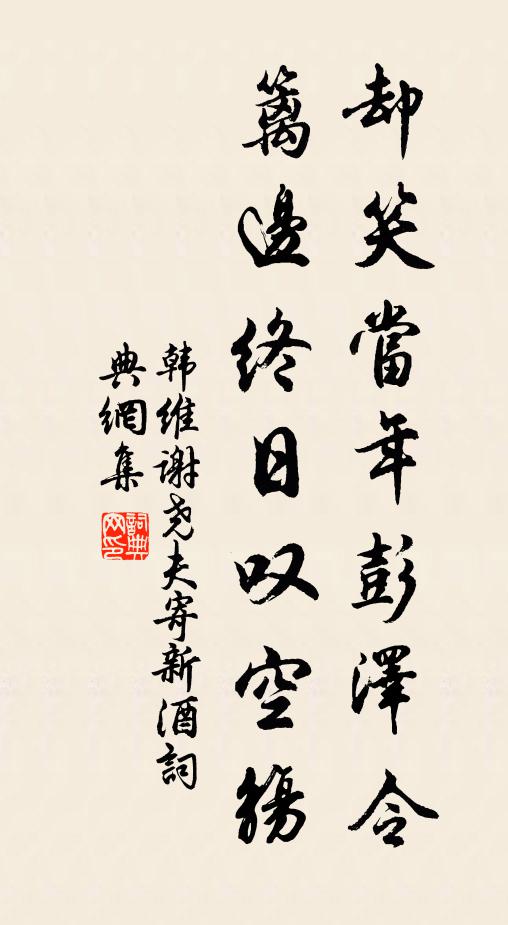 却笑當年彭澤令
籬邊終日叹空觴
韩維谢尧夫寄新酒詞
典網集
詞典网印